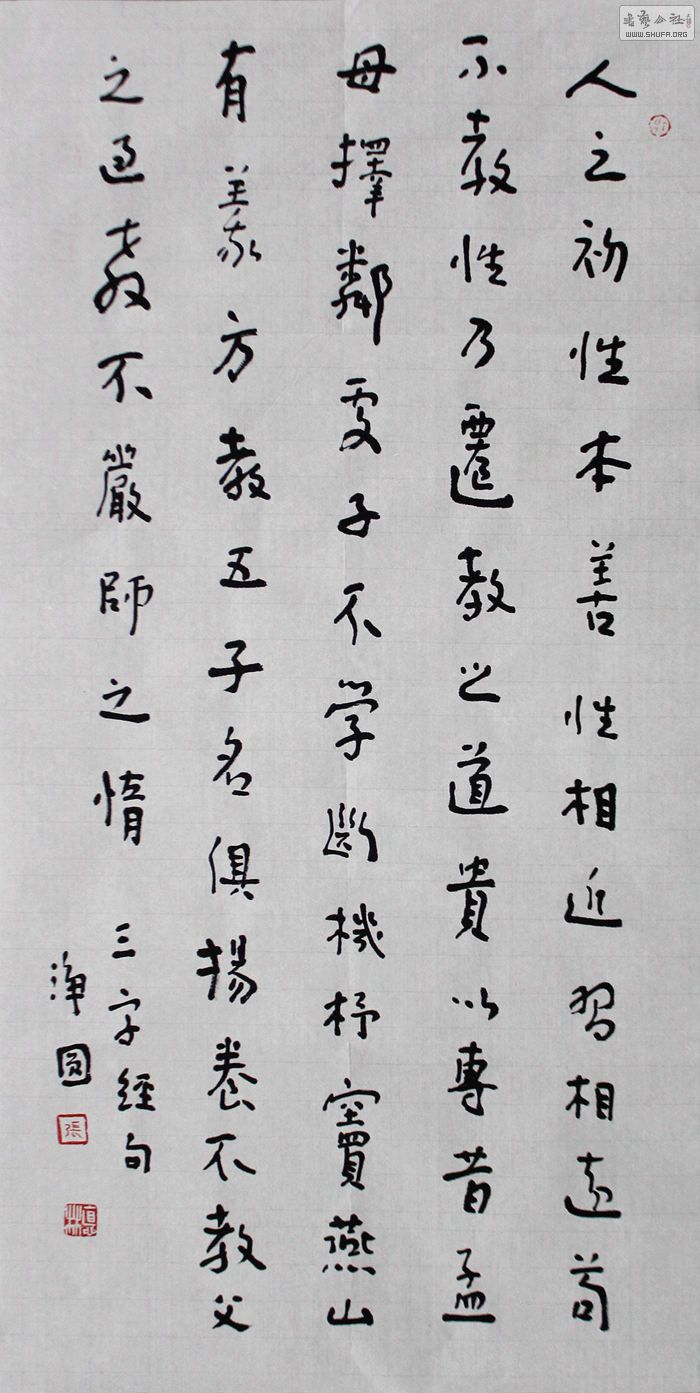 人之初性本善性相近習相遠苟
不教性乃遷教之道貴以專昔孟
母擇鄰處子不学斷機杼竇燕山
有義方教五子名俱揚養不教父
之過教不嚴師之惰
三字經句
淨圓
張
書藝公社
WWW.SHUFA.ORG